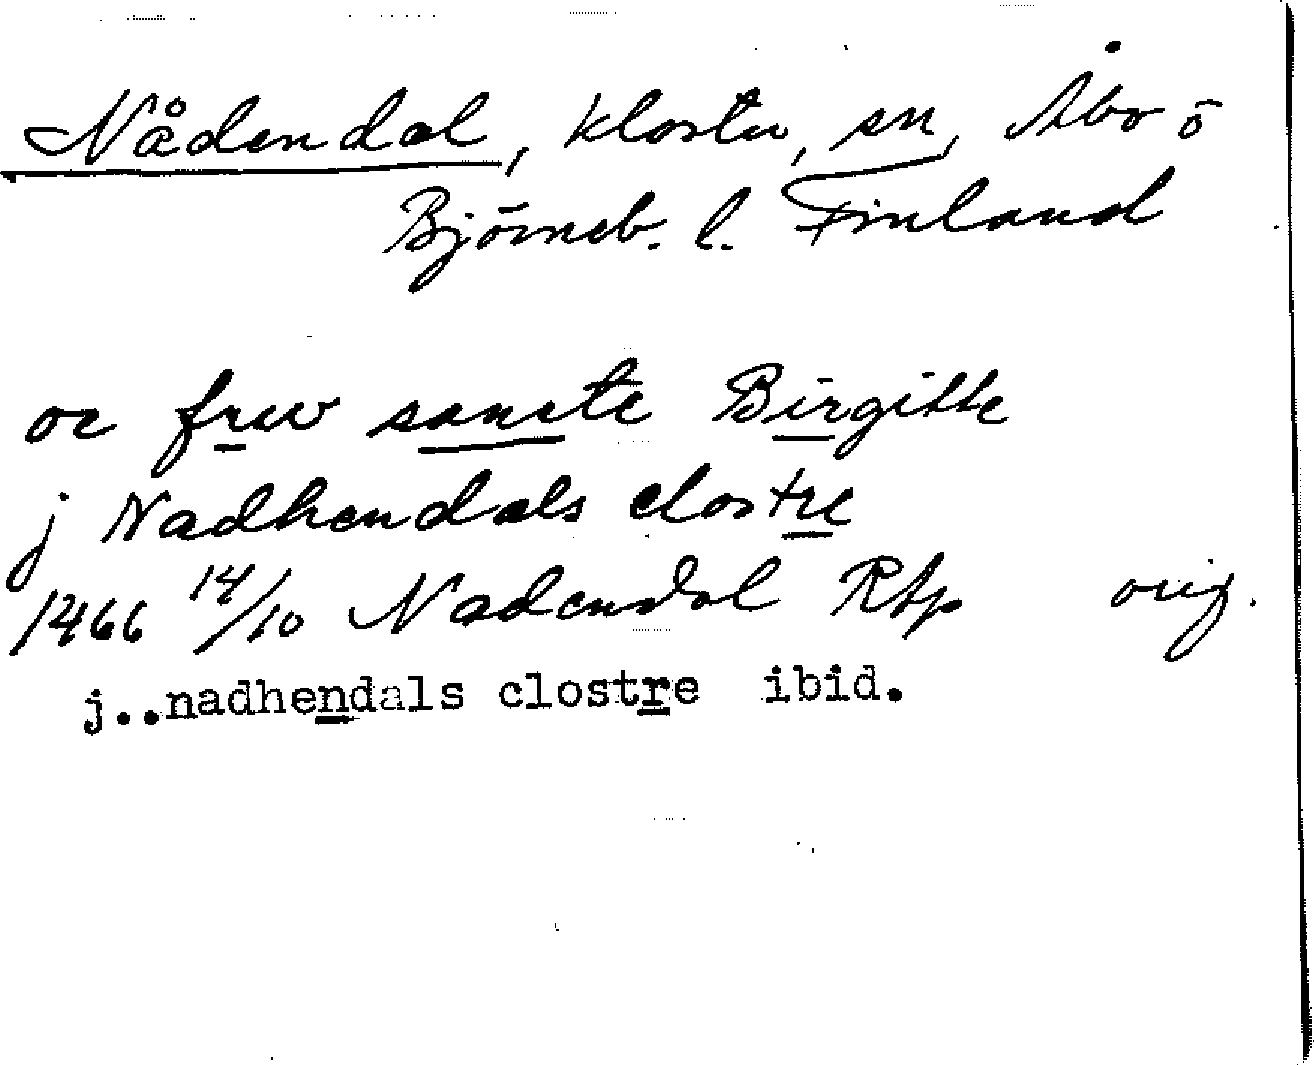 Nådendal, kloster, sn, Åbo o
Björneb. l. Finland
oc frw sancte Birgitte
j Nadhendals clostre
1466 14/10 Nadendal RAp orig.
j..nadhendals clostre ibid.